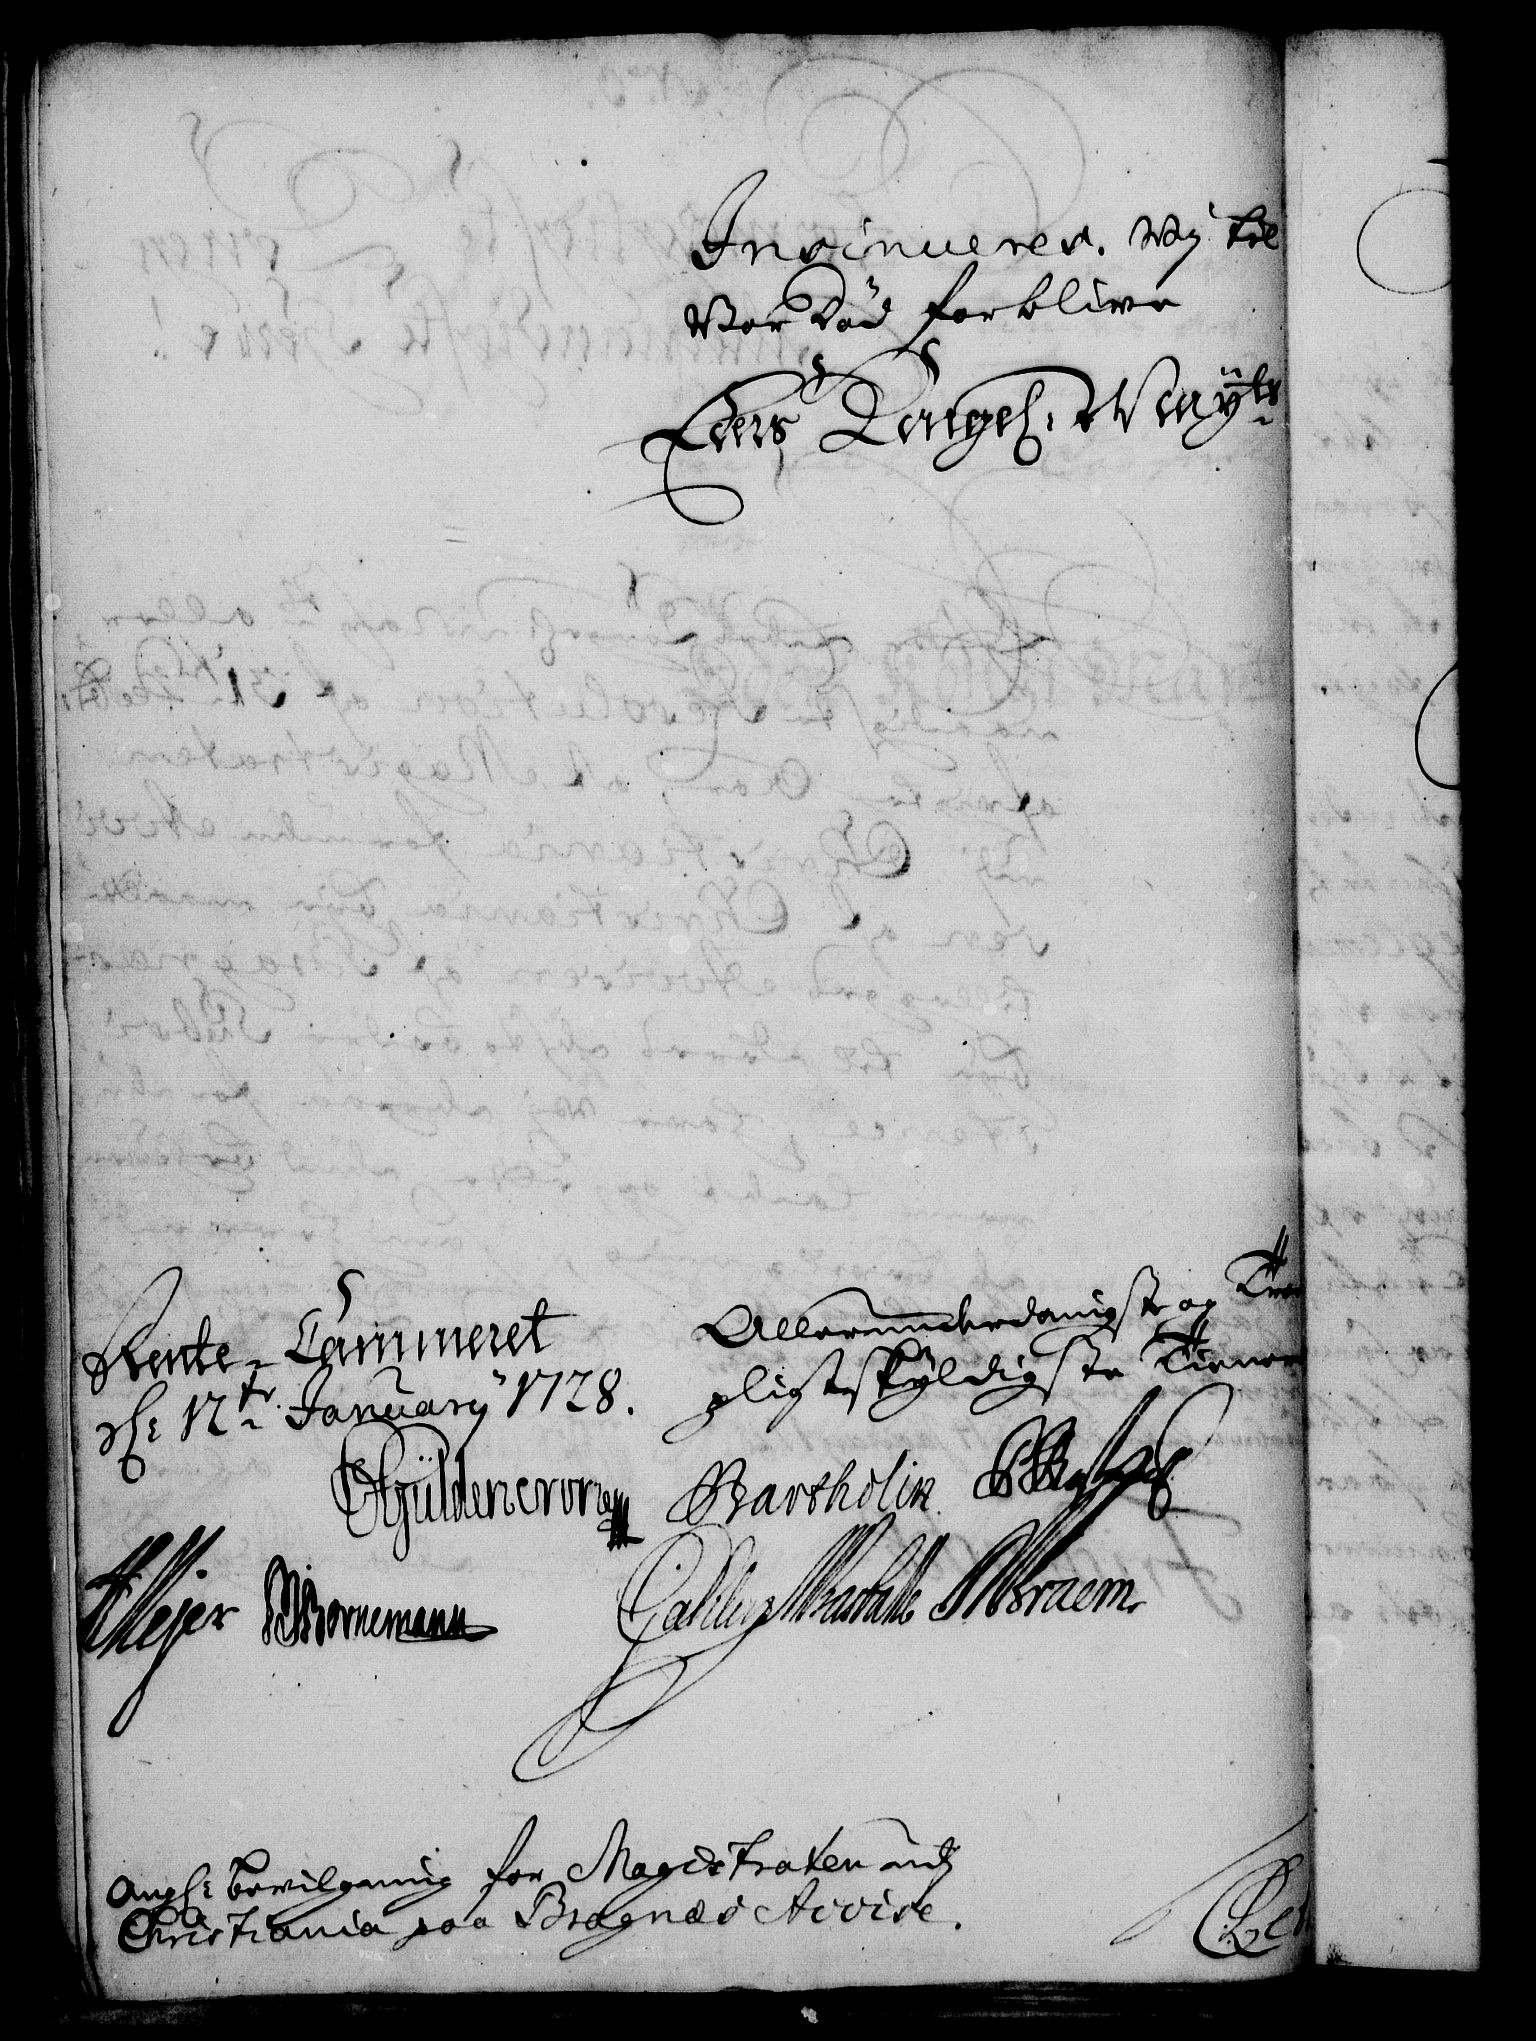 Insinueres. Vij til
Vor død forblive
Eders Kongel: Mayts
Rente-Cammeret
d: 12te January 1728.
Allerunderdanigste og Troe
pligtskyldigste Tienere
Güldencrone
Bartholin
Meyer
Bornemann
Braem.
Angl: bevilgning for Magistraten udj
Christiania paa Bragnæs Accise.